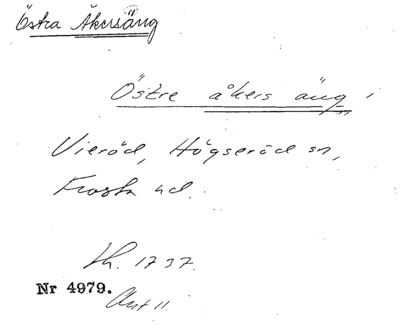 Östra Åkersäng
Östre åkers äng,
Vieröd, Högseröd sn,
Frosta hd.
Lh. 1737.
Nr 4979.
Akt 11.